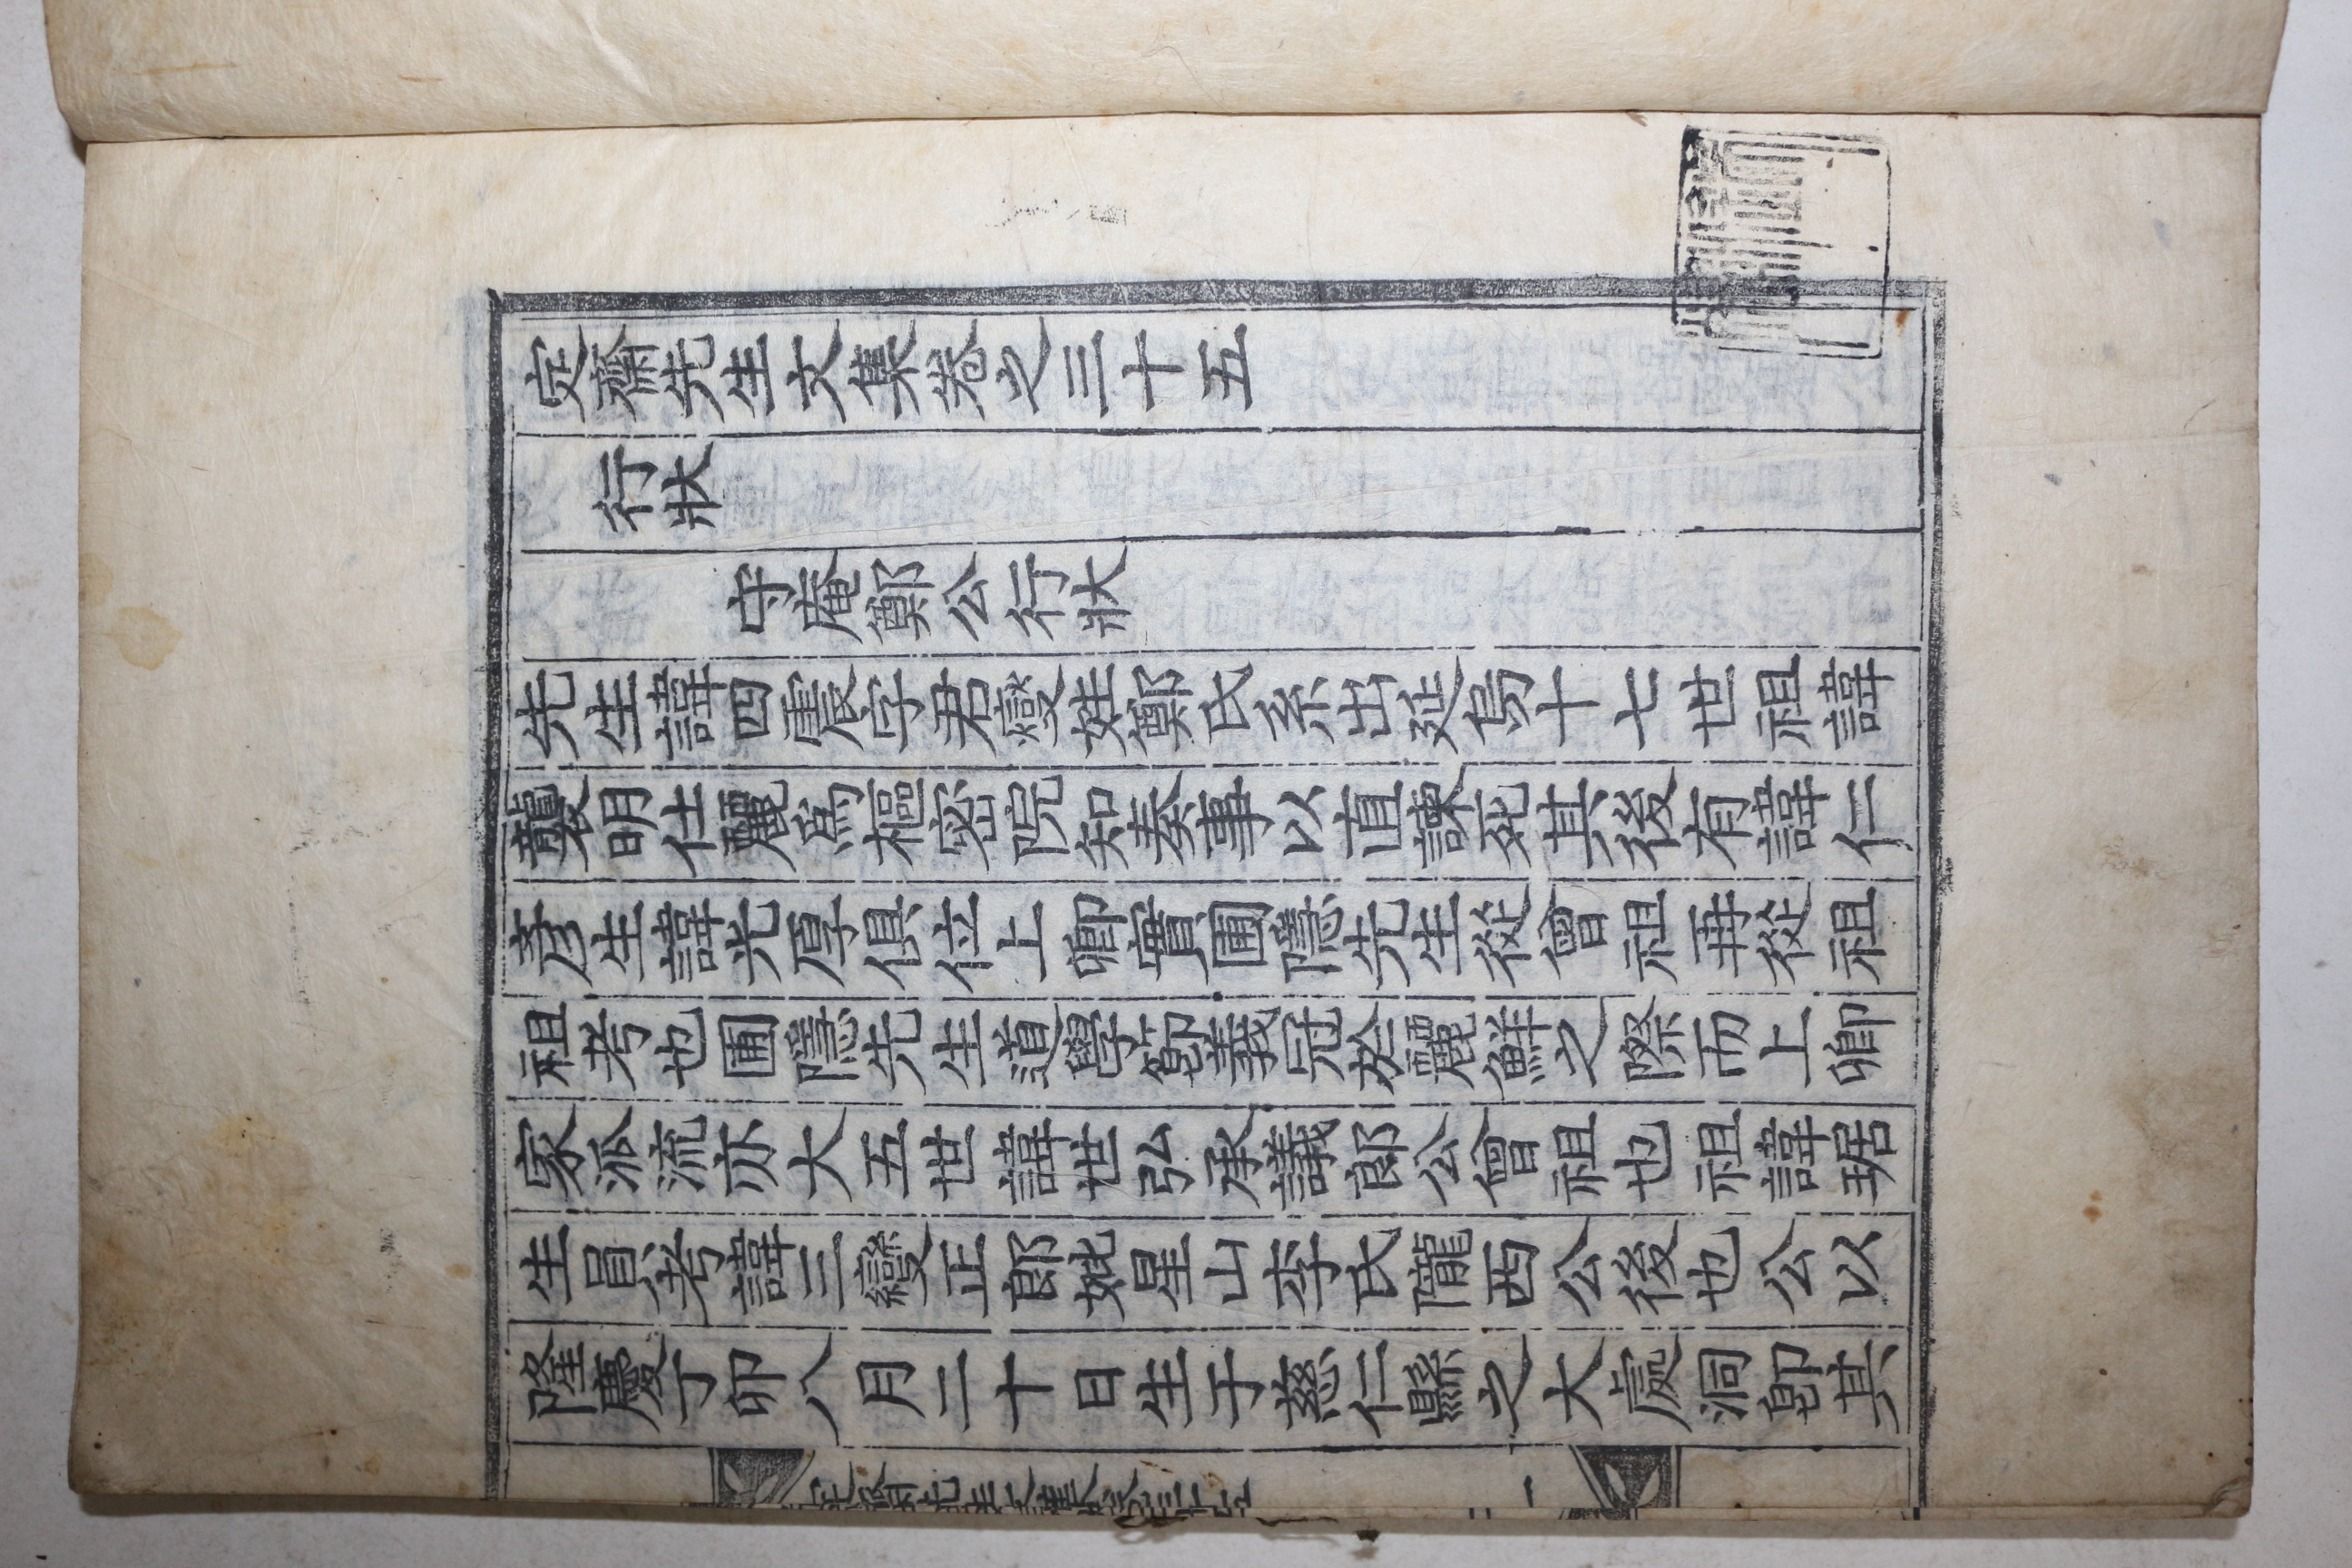 定齋先生文集卷之三十五
行狀
守庵鄭公行狀
先生諱四震字君燮姓鄭氏系出延烏十七世祖諱
襲明仕麗爲樞密院知奏事以直諫死其後有諱仁
彥生諱光厚俱位上卿實圃隱先生從曾祖再從祖
祖考也圃隱先生道學節義冠於麗鮮之際而上卿
家派流亦大五世諱世弘承議郎公曾祖也祖諱琚
生員考諱三變正郎妣星山李氏隴西公後也公以
隆慶丁卯八月二十日生于慈仁縣之大處洞卽其
定齋先生文集卷三十五 一